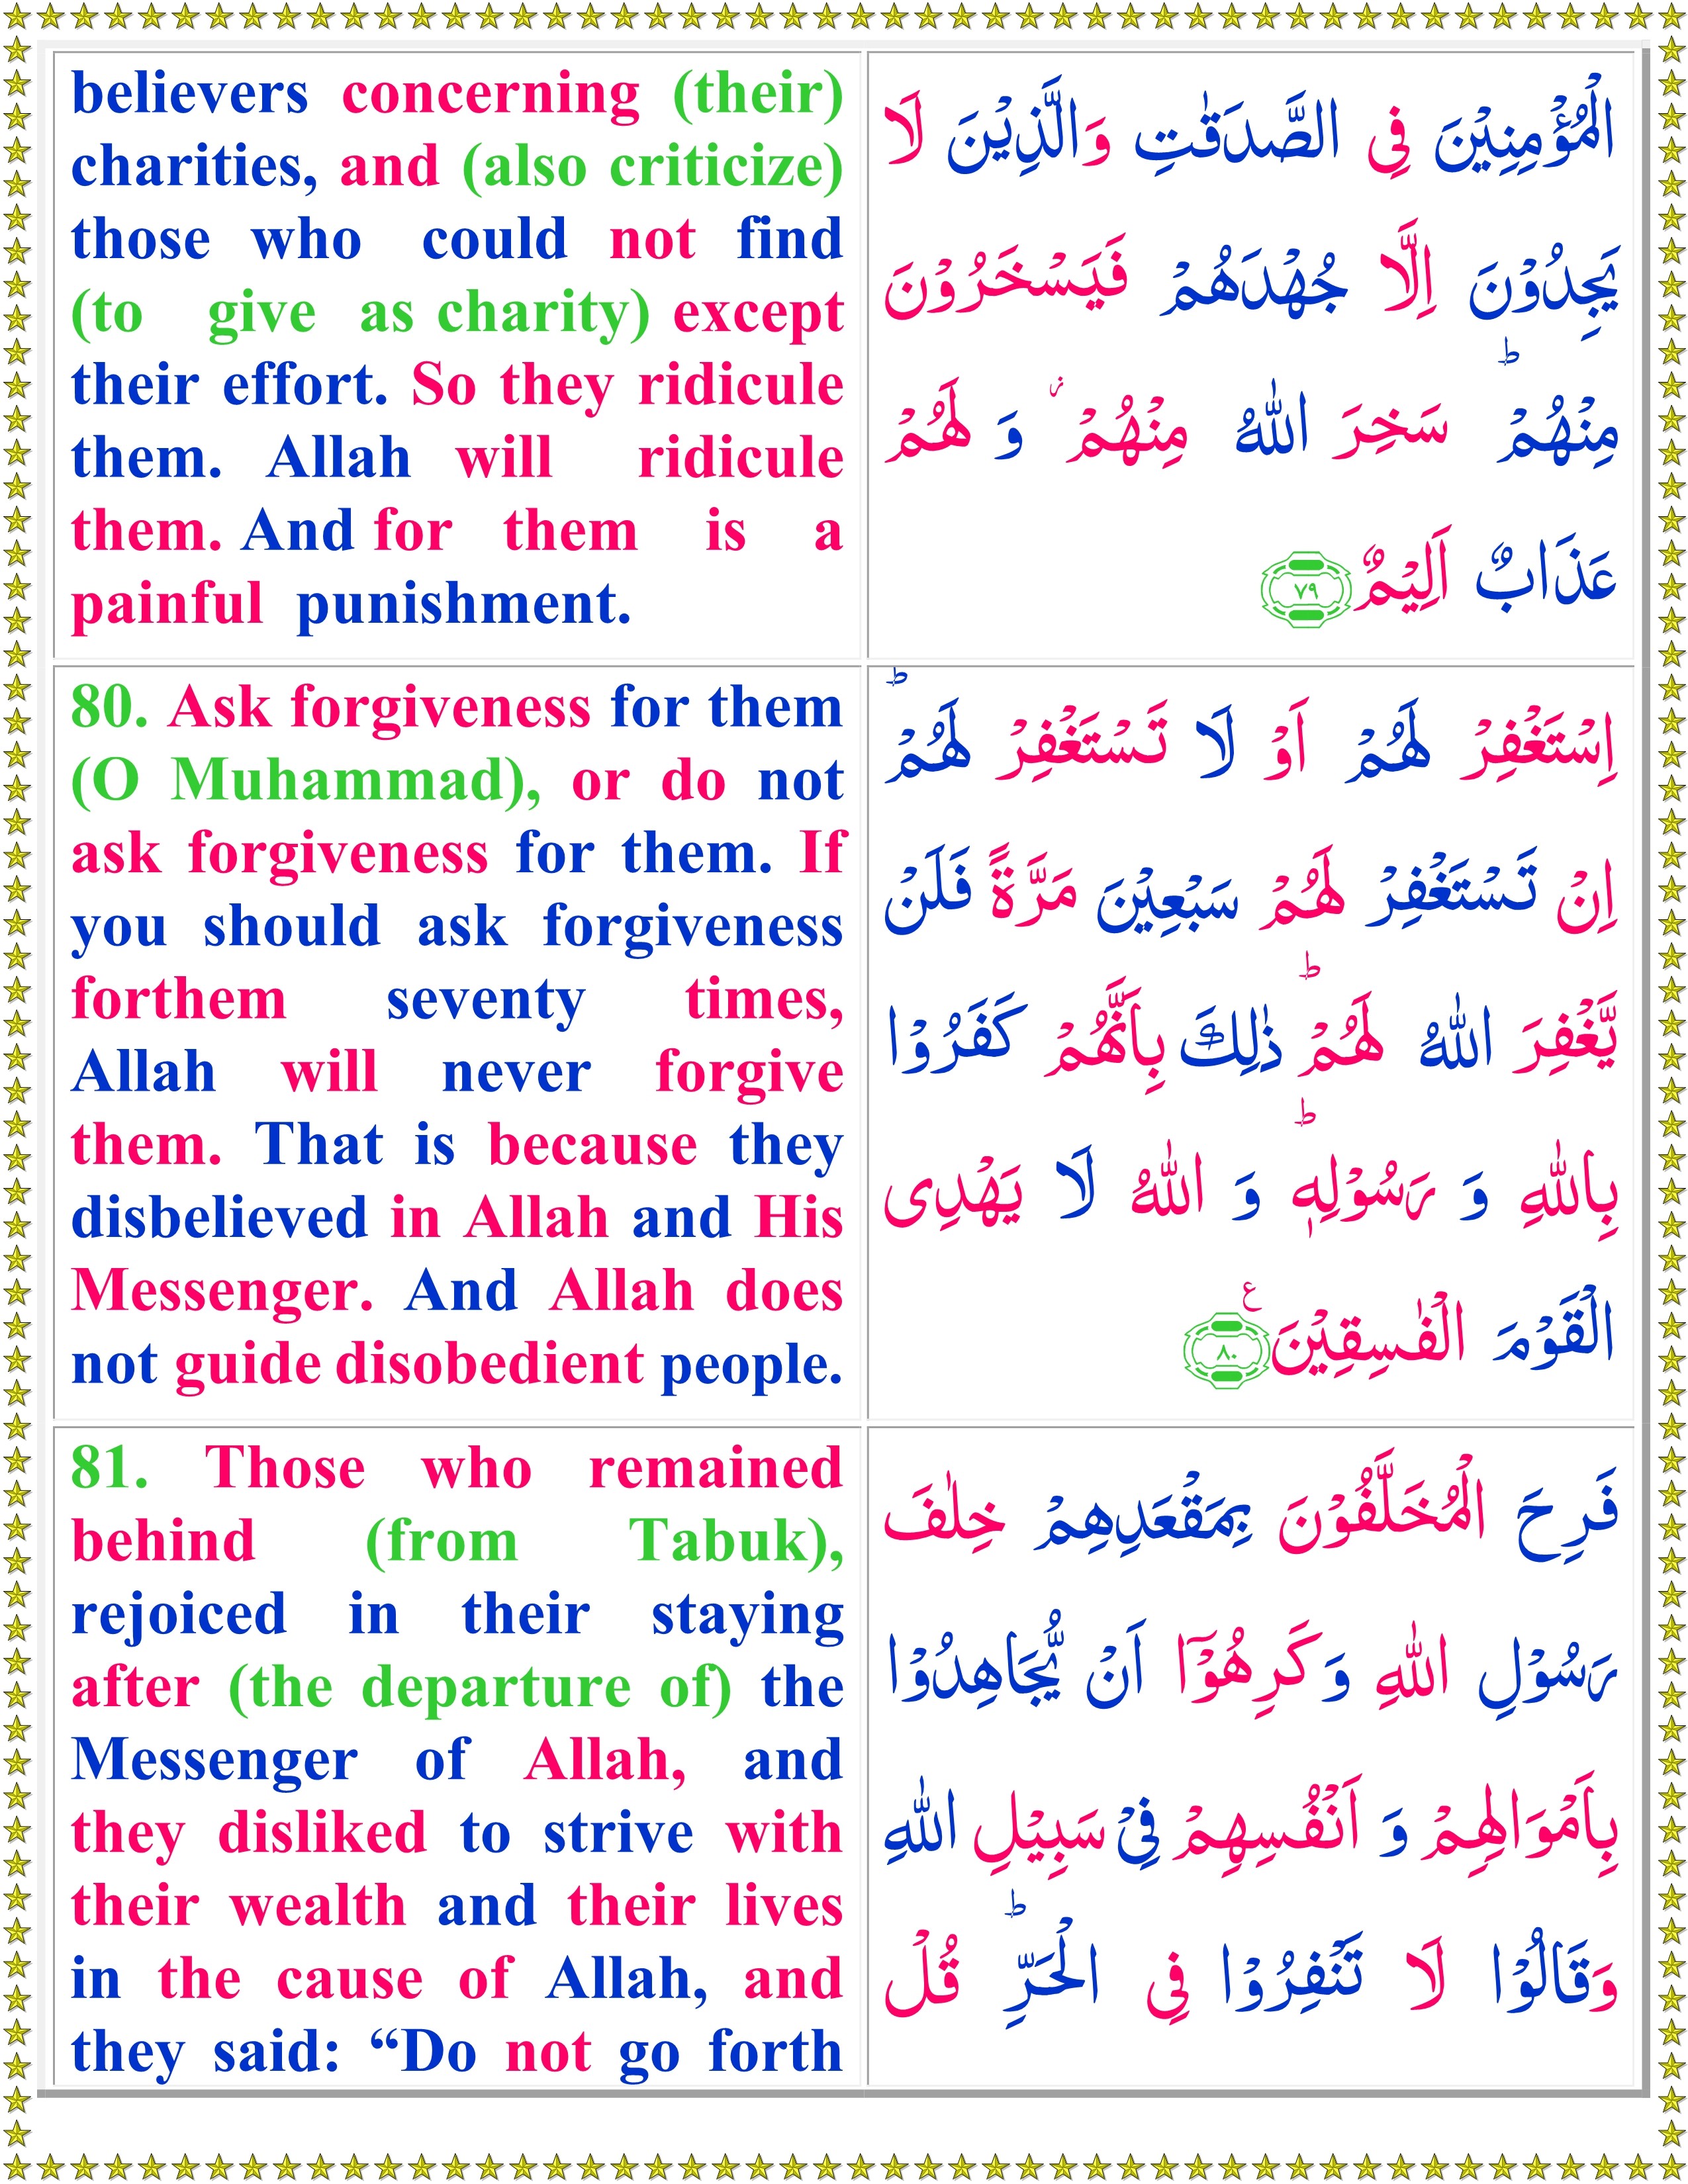 believers concerning (their)
charities, and (also criticize)
those who could not find
(to give as charity) except
their effort. So they ridicule
them. Allah will ridicule
them. And for them is a
painful punishment.
الْمُؤْمِنِيْنَ فِى الصَّدَقٰتِ وَالَّذِيْنَ لَا
يَجِدُوْنَ اِلَّا جُهْدَهُمْ فَيَسْخَرُوْنَ
مِنْهُمْ ؕ سَخِرَ اللّٰهُ مِنْهُمْ ؗ وَ لَهُمْ
عَذَابٌ اَلِيْمٌ ﴿۷۹﴾
80. Ask forgiveness for them
(O Muhammad), or do not
ask forgiveness for them. If
you should ask forgiveness
forthem seventy times,
Allah will never forgive
them. That is because they
disbelieved in Allah and His
Messenger. And Allah does
not guide disobedient people.
اِسْتَغْفِرْ لَهُمْ اَوْ لَا تَسْتَغْفِرْ لَهُمْ ؕ
اِنْ تَسْتَغْفِرْ لَهُمْ سَبْعِيْنَ مَرَّةً فَلَنْ
يَّغْفِرَ اللّٰهُ لَهُمْ ؕ ذٰلِكَ بِاَنَّهُمْ كَفَرُوْا
بِاللّٰهِ وَ رَسُوْلِهٖ ؕ وَ اللّٰهُ لَا يَهْدِى
الْقَوْمَ الْفٰسِقِيْنَ ﴿۸۰﴾ ع
81. Those who remained
behind (from Tabuk),
rejoiced in their staying
after (the departure of) the
Messenger of Allah, and
they disliked to strive with
their wealth and their lives
in the cause of Allah, and
they said: “Do not go forth
فَرِحَ الْمُخَلَّفُوْنَ بِمَقْعَدِهِمْ خِلٰفَ
رَسُوْلِ اللّٰهِ وَكَرِهُوْۤا اَنْ يُّجَاهِدُوْا
بِاَمْوَالِهِمْ وَ اَنْفُسِهِمْ فِىْ سَبِيْلِ اللّٰهِ
وَقَالُوْا لَا تَنْفِرُوْا فِى الْحَرِّ ؕ قُلْ